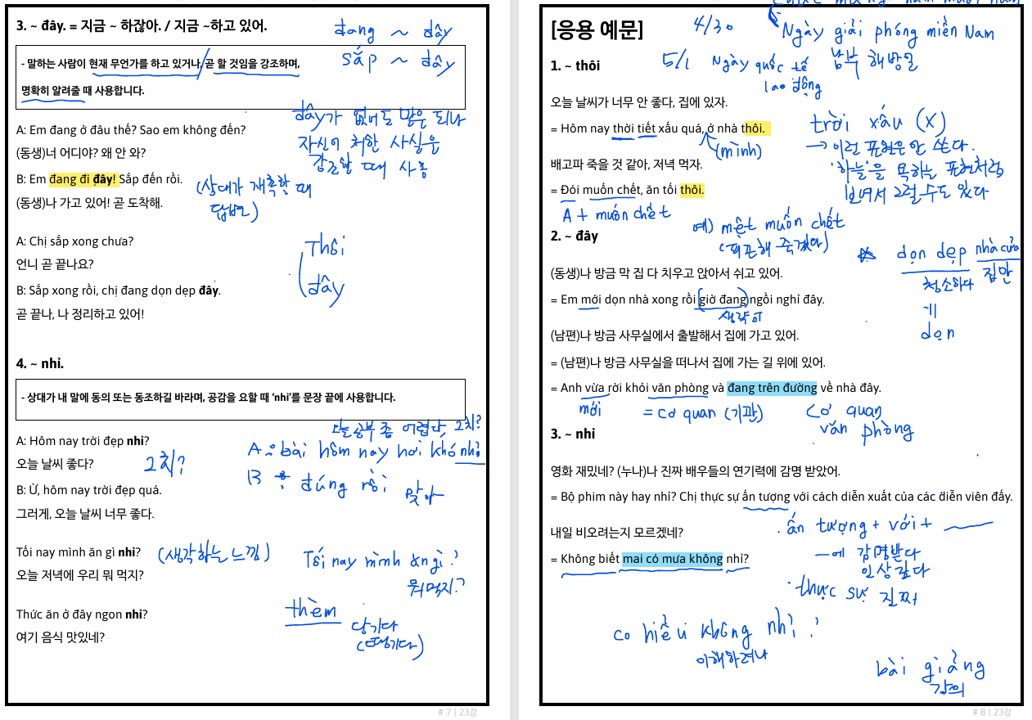 3. ~ đây. = 지금 ~ 하잖아. / 지금 ~하고 있어.
đang ~ đây
sắp ~ đây
- 말하는 사람이 현재 무언가를 하고 있거나/곧 할 것임을 강조하며,
명확히 알려줄 때 사용합니다.
đây가 없어도 말은 되나
자신이 처한 사실을
강조할 때 사용
A: Em đang ở đâu thế? Sao em không đến?
(동생)너 어디야? 왜 안 와?
B: Em đang đi đây! Sắp đến rồi.
(상대가 재촉할 때
답변)
(동생)나 가고 있어! 곧 도착해.
A: Chị sắp xong chưa?
언니 곧 끝나요?
B: Sắp xong rồi, chị đang dọn dẹp đây.
곧 끝나, 나 정리하고 있어!
Thôi
đây
4. ~ nhỉ.
- 상대가 내 말에 동의 또는 동조하길 바라며, 공감을 요할 때 ‘nhỉ’를 문장 끝에 사용합니다.
오늘 공부 좀 어렵다, 그치?
A: Hôm nay trời đẹp nhỉ?
A: bài hôm nay hơi khó nhỉ
오늘 날씨 좋다?
그치?
B: đúng rồi
맞아
B: Ừ, hôm nay trời đẹp quá.
그러게, 오늘 날씨 너무 좋다.
Tối nay mình ăn gì nhỉ?
(생각하는 느낌)
Tối nay mình ăn gì?
뭐 먹지?
오늘 저녁에 우리 뭐 먹지?
Thức ăn ở đây ngon nhỉ?
여기 음식 맛있네?
thèm
당기다
(땡기다)
# 7 | 23강
[응용 예문]
4/30
Ngày giải phóng miền Nam
남부 해방일
5/1 Ngày quốc tế
lao động
1. ~ thôi
오늘 날씨가 너무 안 좋다, 집에 있자.
= Hôm nay thời tiết xấu quá, ở nhà thôi.
(mình)
trời xấu (X)
→ 이런 표현은 안 쓴다.
'하늘'을 욕하는 표현처럼
보여서 그럴 수도 있다
배고파 죽을 것 같아, 저녁 먹자.
= Đói muốn chết, ăn tối thôi.
A + muốn chết
예) mệt muốn chết
(피곤해 죽겠다)
2. ~ đây
dọn dẹp nhà cửa
청소하다 집안
=
dọn
(동생)나 방금 막 집 다 치우고 앉아서 쉬고 있어.
= Em mới dọn nhà xong rồi giờ đang ngồi nghỉ đây.
생략 可
(남편)나 방금 사무실에서 출발해서 집에 가고 있어.
= (남편)나 방금 사무실을 떠나서 집에 가는 길 위에 있어.
= Anh vừa rời khỏi văn phòng và đang trên đường về nhà đây.
mới
= cơ quan (기관)
cơ quan
văn phòng
3. ~ nhỉ
영화 재밌네? (누나)나 진짜 배우들의 연기력에 감명 받았어.
= Bộ phim này hay nhỉ? Chị thực sự ấn tượng với cách diễn xuất của các diễn viên đấy.
ấn tượng + với +
~에 감명받다
인상깊다
thực sự 진짜
내일 비오려는지 모르겠네?
= Không biết mai có mưa không nhỉ?
có hiểu không nhỉ?
이해하려나
bài giảng
강의
# 8 | 23강